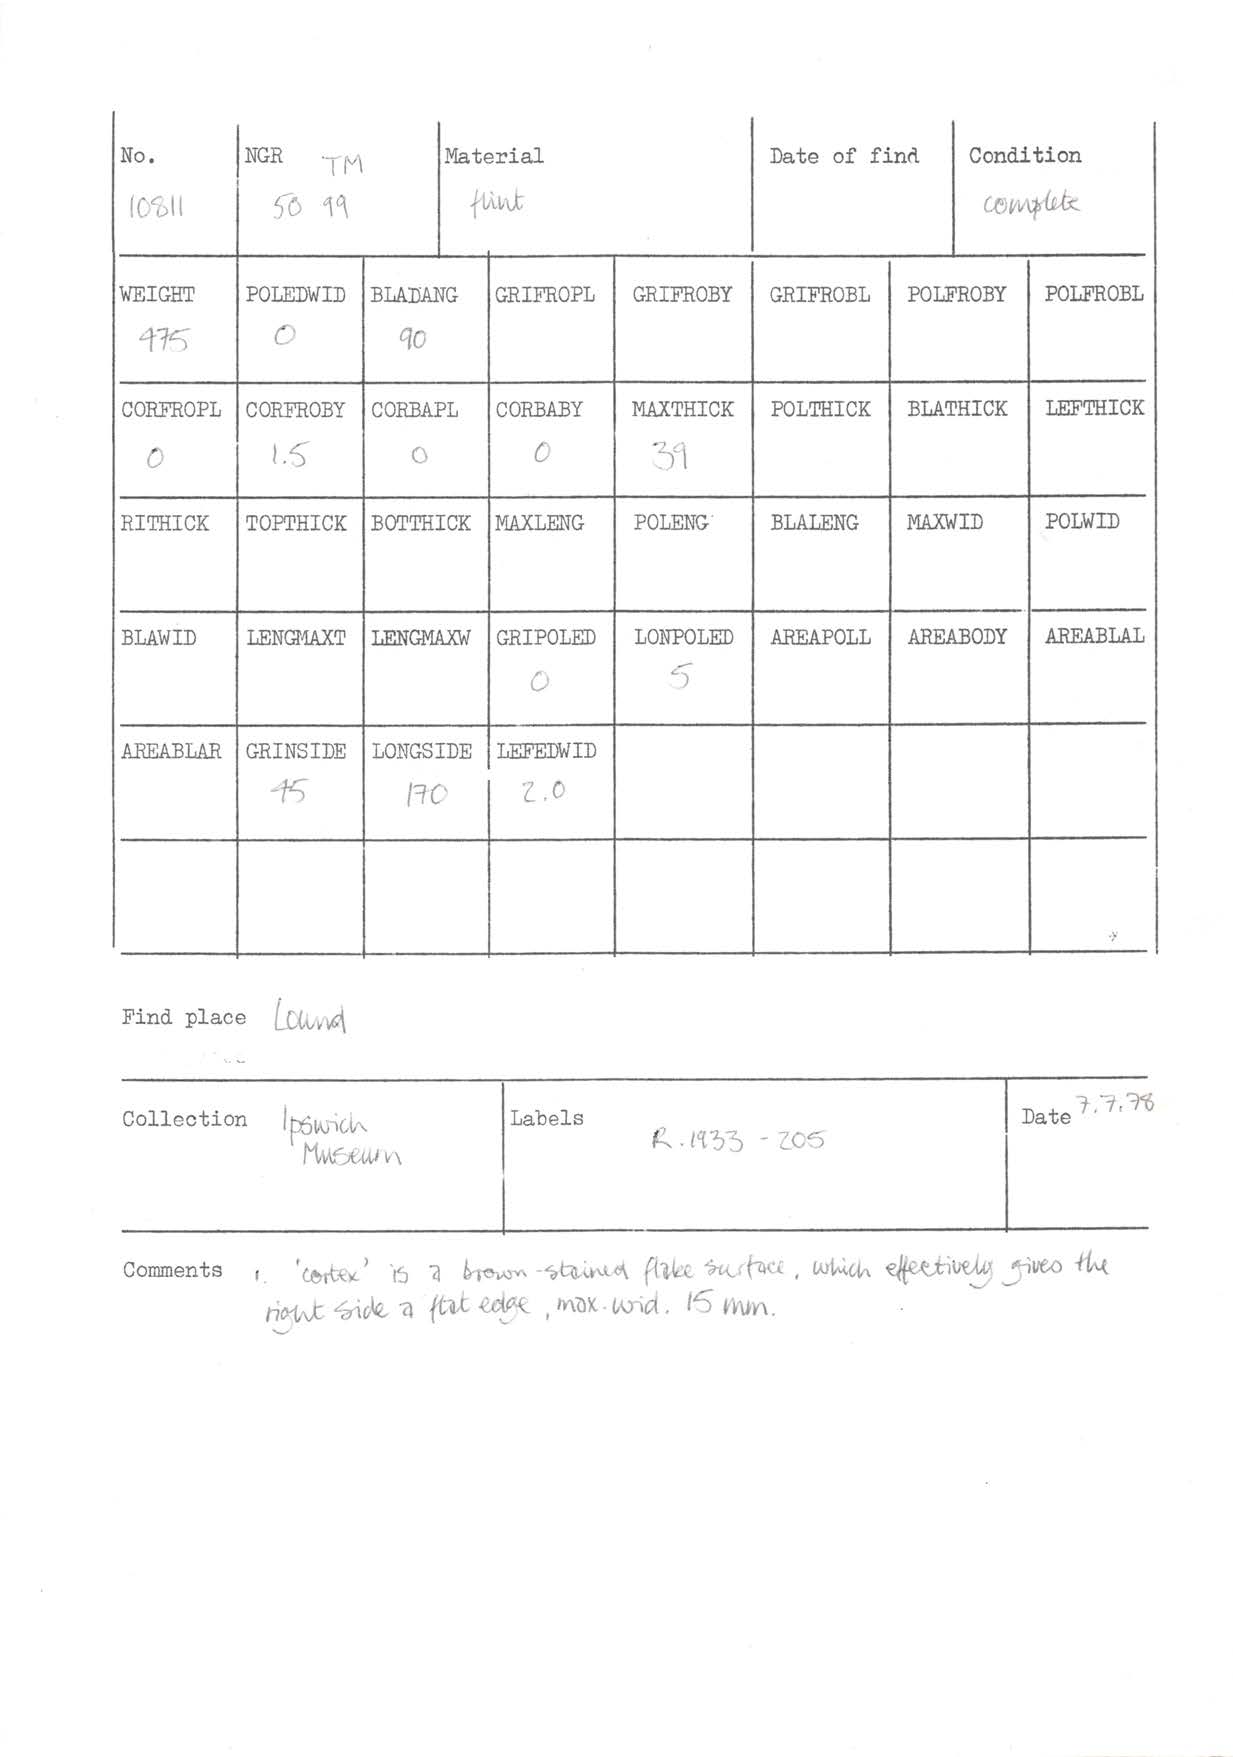 No. NGR TM Material Date of find Condition
10811 50 99 flint complete
WEIGHT POLEDWID BLADANG GRIFROPL GRIFROBY GRIFROBL POLFROBY POLFROBL
475 0 90
CORFROPL CORFROBY CORBAPL CORBABY MAXTHICK POLTHICK BLATHICK LEFTHICK
0 1.5 0 0 39
RITHICK TOPTHICK BOTTHICK MAXLENG POLENG BLALENG MAXWID POLWID
BLAWID LENGMAXT LENGMAXW GRIPOLED LONPOLED AREAPOLL AREABODY AREABLAL
0 5
AREABLAR GRINSIDE LONGSIDE LEFEDWID
45 170 2.0
Find place Lound
Collection Ipswich Museum Labels R.1933-205 Date 7.7.78
Comments 1. 'cortex' is a brown-stained flake surface, which effectively gives the
right side a flat edge, max. wid. 15 mm.